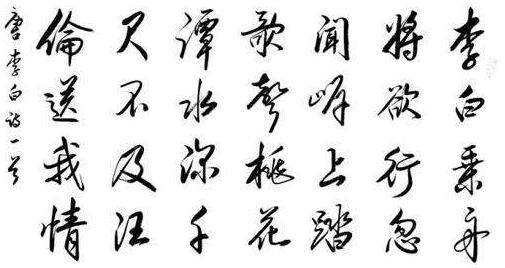 李白乘舟
将欲行忽
闻岸上踏
歌聲桃花
潭水深千
尺不及汪
倫送我情
唐李白诗一首